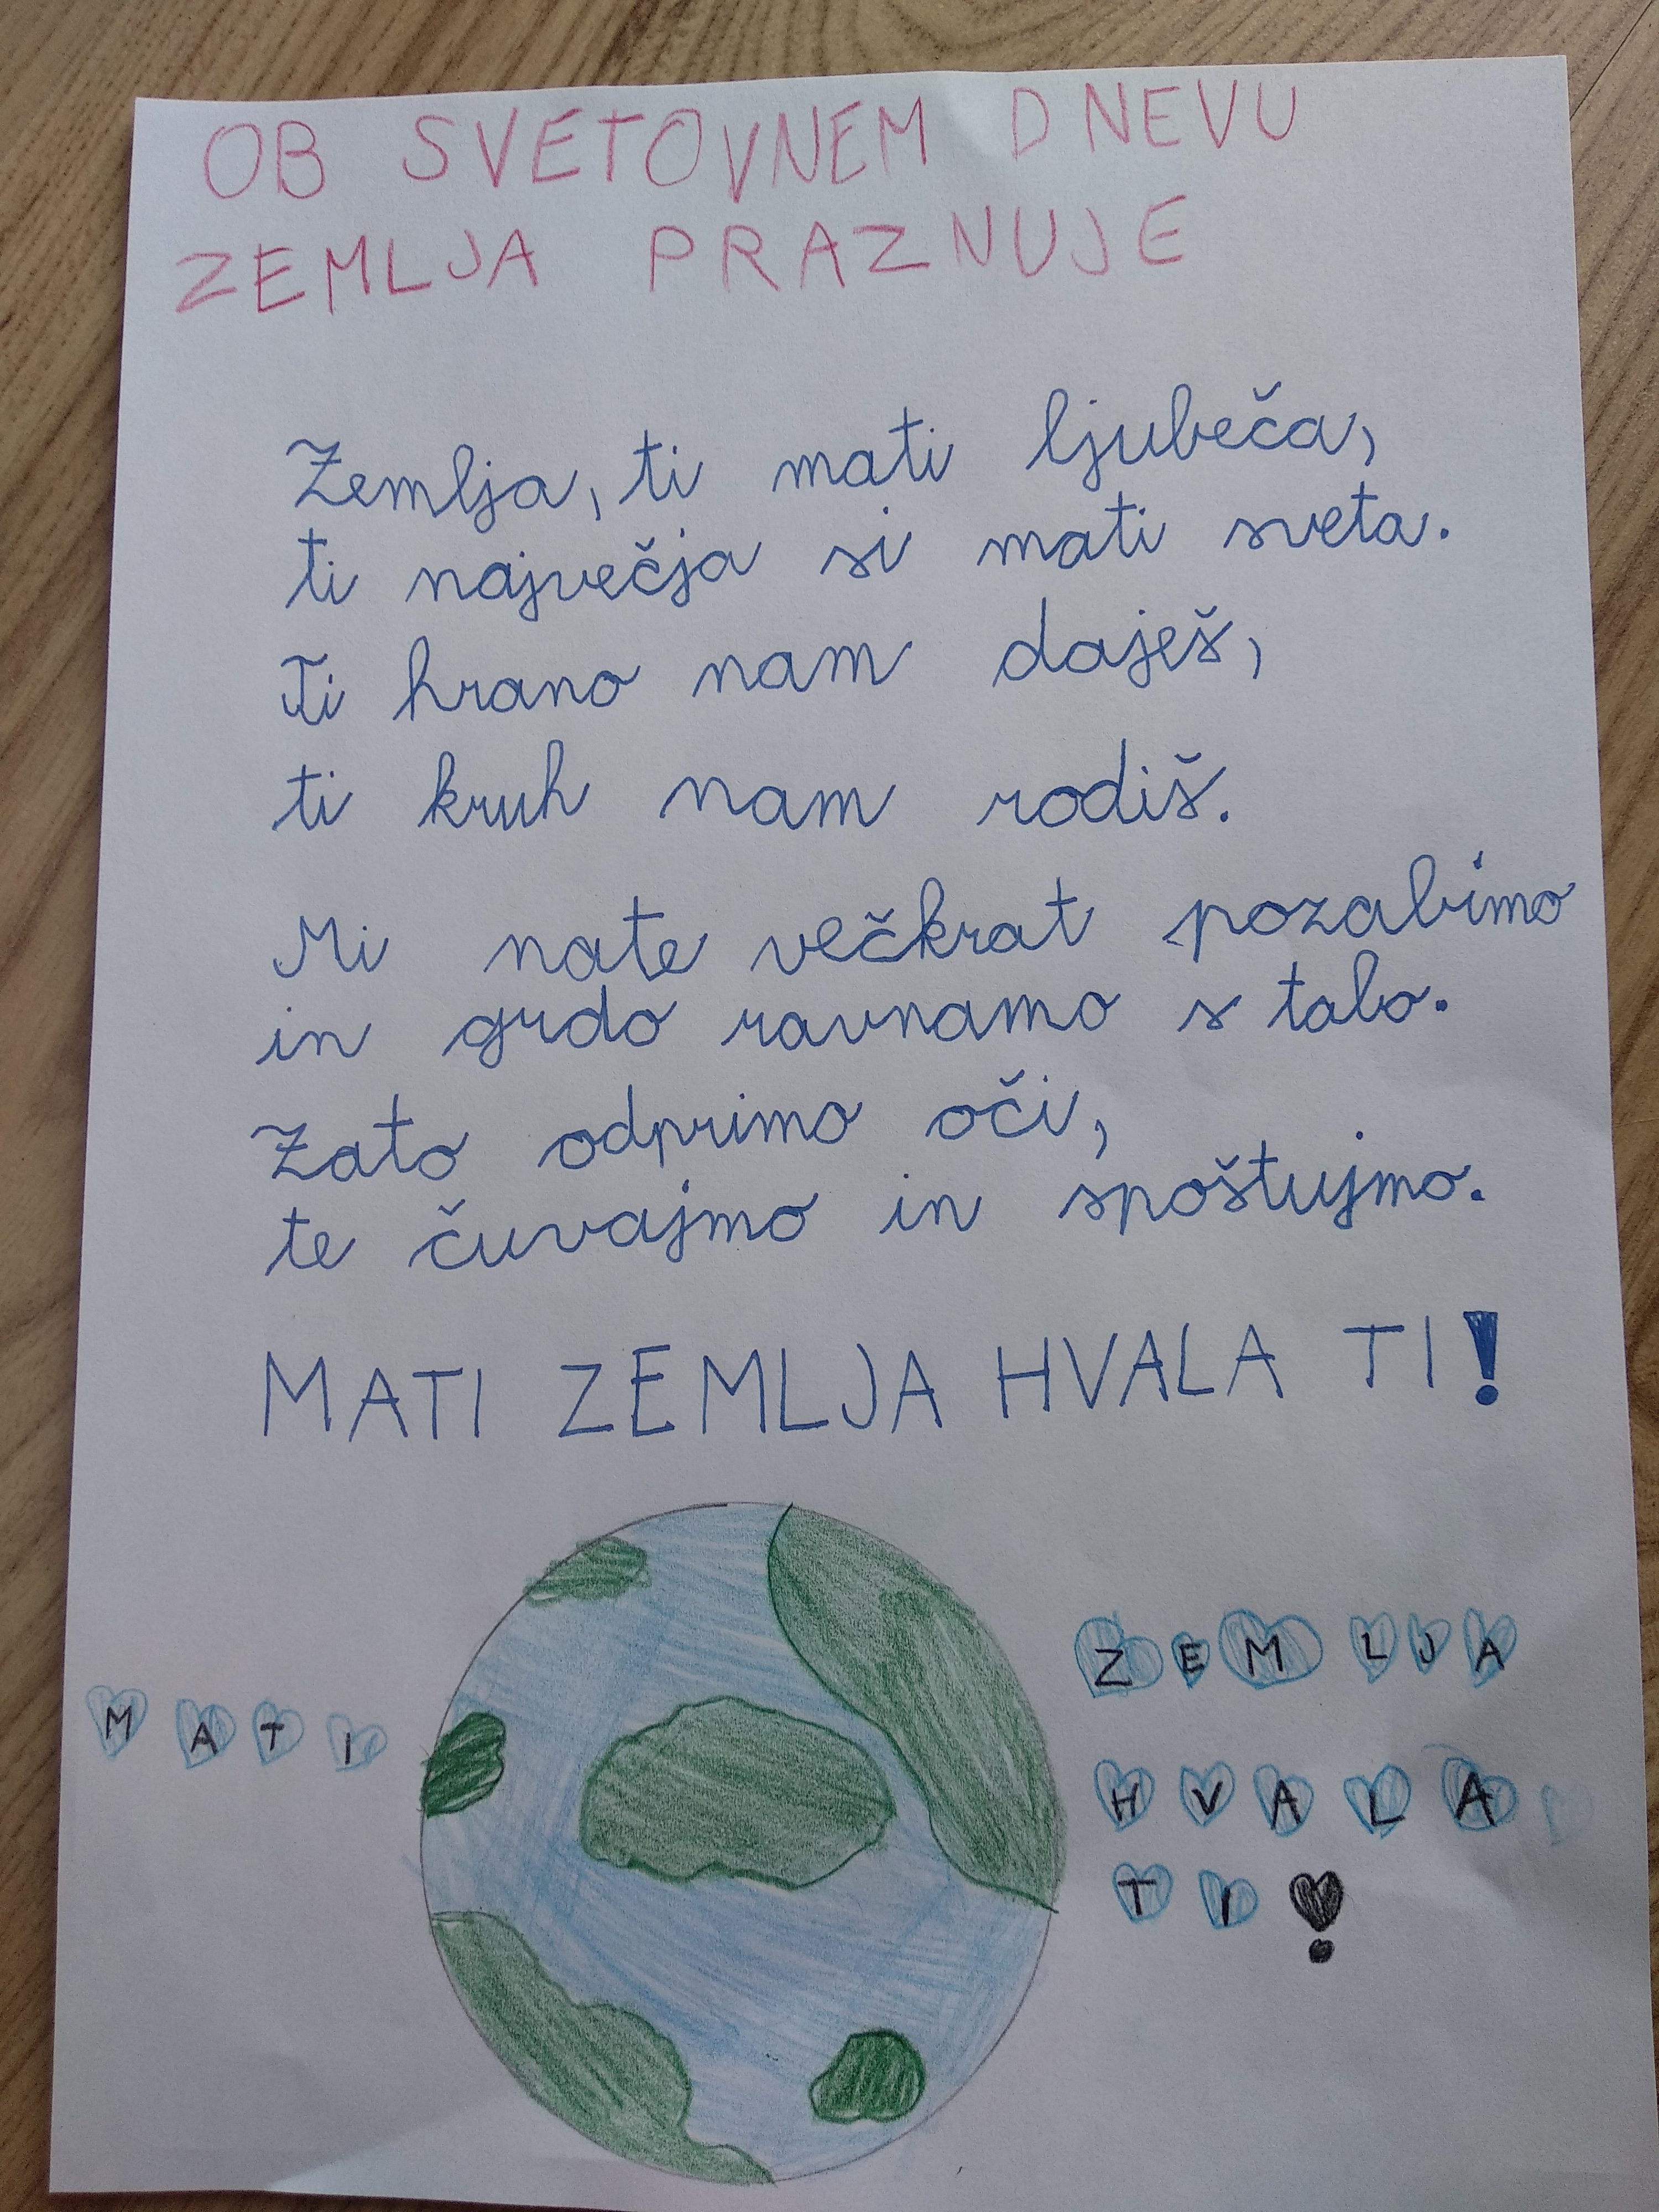 OB SVETOVNEM DNEVU
ZEMLJA PRAZNUJE
Zemlja, ti mati ljubeča,
ti največja si mati sveta.
Ti hrano nam daješ,
ti kruh nam rodiš.
Mi nate večkrat pozabimo
in grdo ravnamo s tabo.
Zato odprimo oči,
te čuvajmo in spoštujmo.
MATI ZEMLJA HVALA TI!
MATI
ZEMLJA
HVALA
TI!